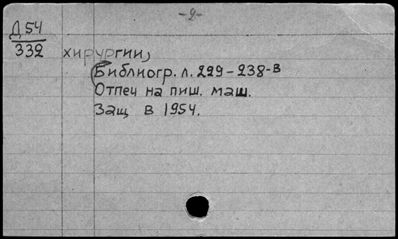 -2-
Д54
332 хирургии,
Библиогр. л. 229-238-в
Отпеч на пиш. маш.
Защ в 1954.